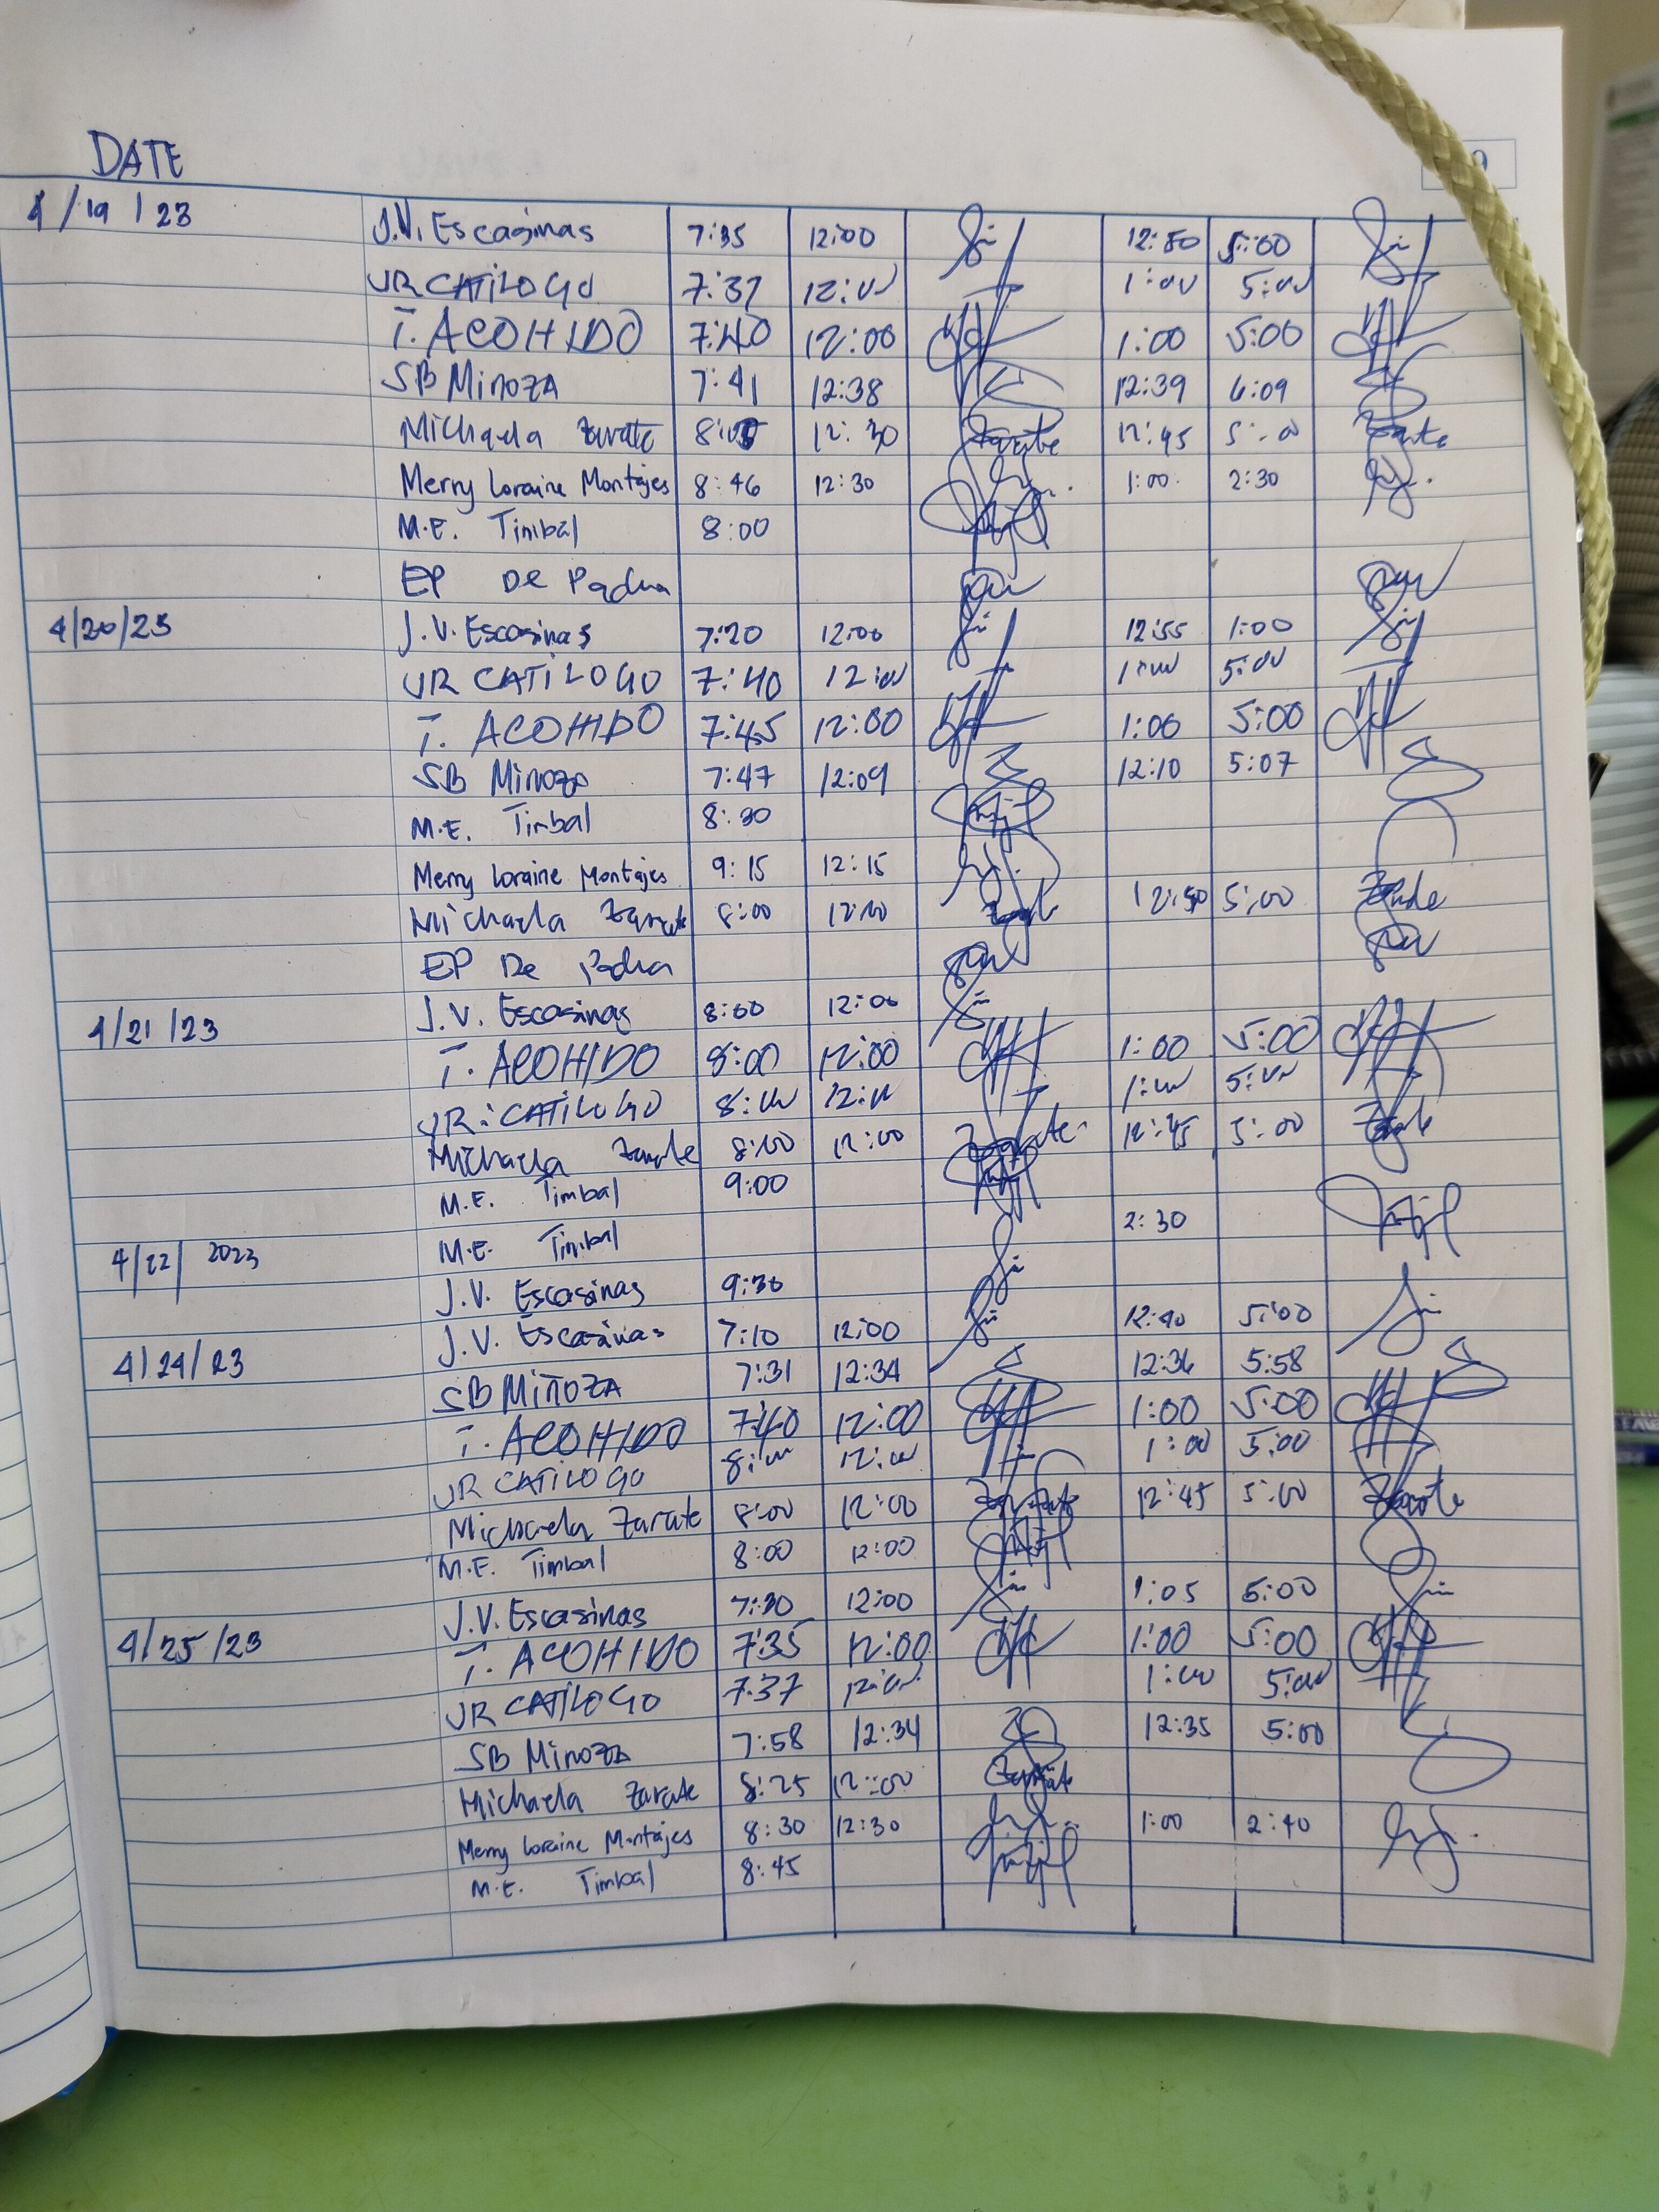 DATE
4/19/23 J.V. Escasinas 7:35 12:00 12:50 5:00
JR CATILOGO 7:37 12:00 1:00 5:00
T. ACOHIDO 7:40 12:00 1:00 5:00
SB Minoza 7:41 12:38 12:39 6:09
Michaela Zarate 12:30 Zarate 12:45 5:00 Zarate
Merry Loraine Montajes 8:46 12:30 1:00 2:30
M.E. Timbal 8:00
EP De Padua
4/20/23 J.V. Escasinas 7:20 12:00 12:55 1:00
JR CATILOGO 7:40 12:00 1:00 5:00
T. ACOHIDO 7:45 12:00 1:00 5:00
SB Minoza 7:47 12:09 12:10 5:07
M.E. Timbal 8:30
Merry Loraine Montajes 9:15 12:15
Michaela Zarate 8:00 12:50 5:00
EP De Padua
4/21/23 J.V. Escasinas 8:00 12:00
T. ACOHIDO 8:00 12:00 1:00 5:00
JR. CATILOGO 8:00 12:00 1:00 5:00
Michaela Zarate 8:00 12:00 Zarate 12:45 5:00
M.E. Timbal 9:00
4/22/2023 M.E. Timbal 2:30
J.V. Escasinas 9:30
4/24/23 J.V. Escasinas 7:10 12:00 12:40 5:00
SB Miñoza 7:31 12:34 12:36 5:58
T. ACOHIDO 7:40 12:00 1:00 5:00
JR CATILOGO 8:00 12:00 1:00 5:00
Michaela Zarate 8:00 12:00 Zarate 12:45 5:00 Zarate
M.E. Timbal 8:00 12:00
4/25/23 J.V. Escasinas 7:30 12:00 1:05 5:00
T. ACOHIDO 7:35 12:00 1:00 5:00
JR CATILOGO 7:37 12:00 1:00 5:00
SB Minoza 7:58 12:34 12:35 5:00
Michaela Zarate 8:25 12:00 Zarate
Merry Loraine Montajes 8:30 12:30 1:00 2:40
M.E. Timbal 8:45